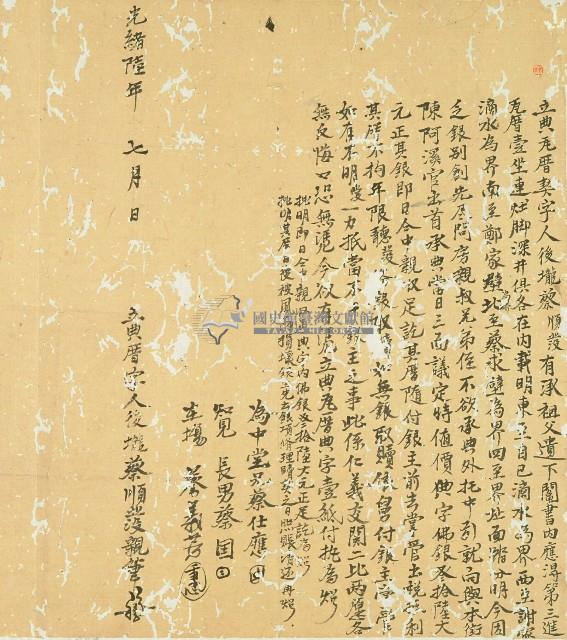 立典瓦厝契字人後壠蔡順發有承祖父遺下鬮書內應得第三進
瓦厝壹坐連灶脚深井俱各在內載明東至自己滴水為界西至謝家
滴水為界南至鄭家壁北至蔡求壁為界四至界址面踏分明今因
乏銀別創先尽問房親叔兄弟侄不欲承典外托中引就向與水街
陳阿溪官出首承典當日三面議定時值價典字佛銀叁拾陸大
元正其銀即日仝中親收足訖其厝隨付銀主前去掌管出稅
其厝不拘年限聽發備銀取贖如無銀取贖依舊付銀主掌管
如有不明發一力抵當不干銀主之事此係仁義交關二比兩愿各
無反悔口恐無憑今欲有憑立典瓦厝典字壹紙付執為炤
批明即日仝中親收過典字內佛銀叁拾陸大元正足訖
批明其厝日後被風損壞銀主先去銀項修理贖之日照賬清还再炤
為中堂兄蔡仕應
知見長男蔡
在場蔡義芳
光緒陸年 七月 日 立典厝字人後壠蔡順發親筆
國史館臺灣文獻館
TAIWAN HISTORICA